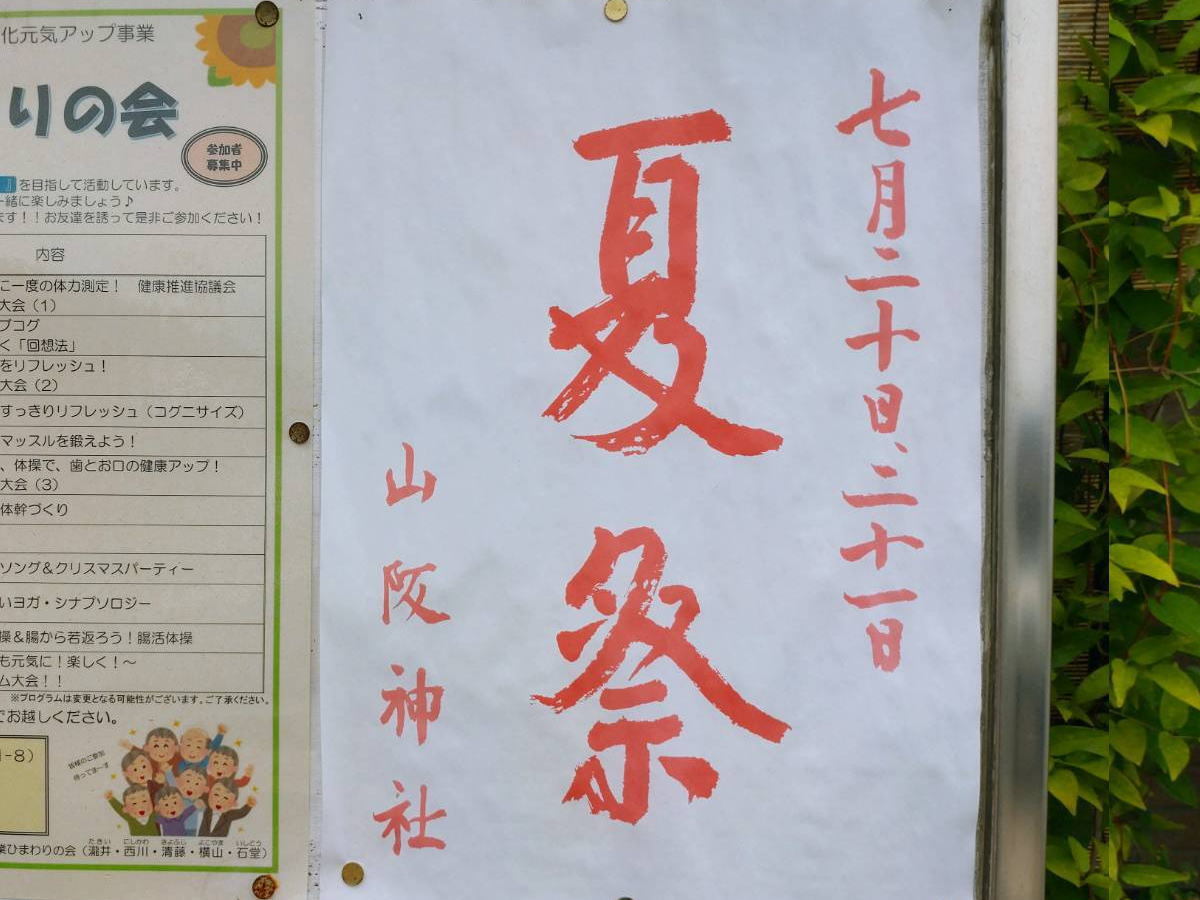 化元気アップ事業
りの会
参加者
募集中
』を目指して活動しています。
一緒に楽しみましょう♪
ます！！お友達を誘って是非ご参加ください！
内容
に一度の体力測定！　健康推進協議会
大会（1）
ブコグ
く「回想法」
をリフレッシュ！
大会（2）
すっきりリフレッシュ（コグニサイズ）
マッスルを鍛えよう！
、体操で、歯とお口の健康アップ！
大会（3）
体幹づくり
ソング＆クリスマスパーティー
いヨガ・シナプソロジー
操＆腸から若返ろう！腸活体操
も元気に！楽しく！～
ム大会！！
※プログラムは変更となる可能性がございます。ご了承ください。
でお越しください。
-8）
皆様のご参加
待ってま～す
業ひまわりの会（瀧井・西川・清藤・横山・石堂）
たきい　にしかわ　きよふじ　よこやま　いしどう
七月二十日、二十一日
夏祭
山阪神社